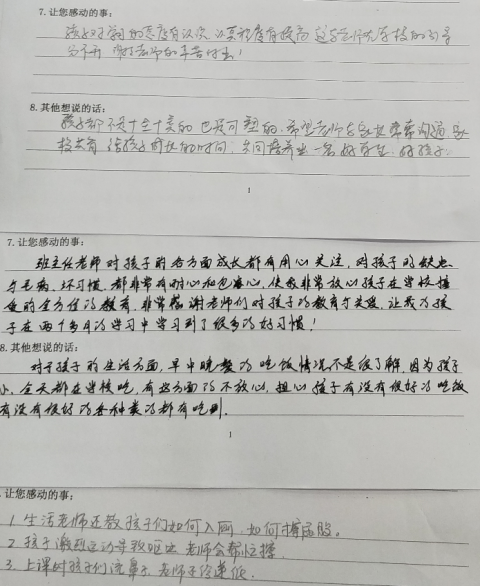 7. 让您感动的事:
孩子对学习的态度有认次,认真程度有提高 这与老师及学校的引导
分不开 谢谢老师的辛苦付出!
8. 其他想说的话:
孩子都不是十全十美的 也是可塑的,希望老师与家长常常沟通,
给孩子成长的时间,共同培养出一名好学生,好孩子。
1
7. 让您感动的事:
班主任老师对孩子的各方面成长都有用心关注,对孩子的缺点
与毛病、坏习惯,都非常有耐心和包容心,使我非常放心孩子在学校接
受的全方位的教育,非常感谢老师们对孩子的教育与关爱,让我的孩
子在两个多月的学习中学习到了很多的好习惯!
8. 其他想说的话:
对于孩子的生活方面,早中晚餐的吃饭情况不是很了解,因为孩子
小,全天都在学校吃,有些方面的不放心,担心孩子有没有很好的吃饭
有没有很好的各种类的都有吃到。
1
.让您感动的事:
1. 生活老师还教孩子们如何入厕,如何擦屁股。
2. 孩子激烈运动导致呕吐,老师会帮忙撑
3. 上课时孩子们流鼻子,老师予给递纸